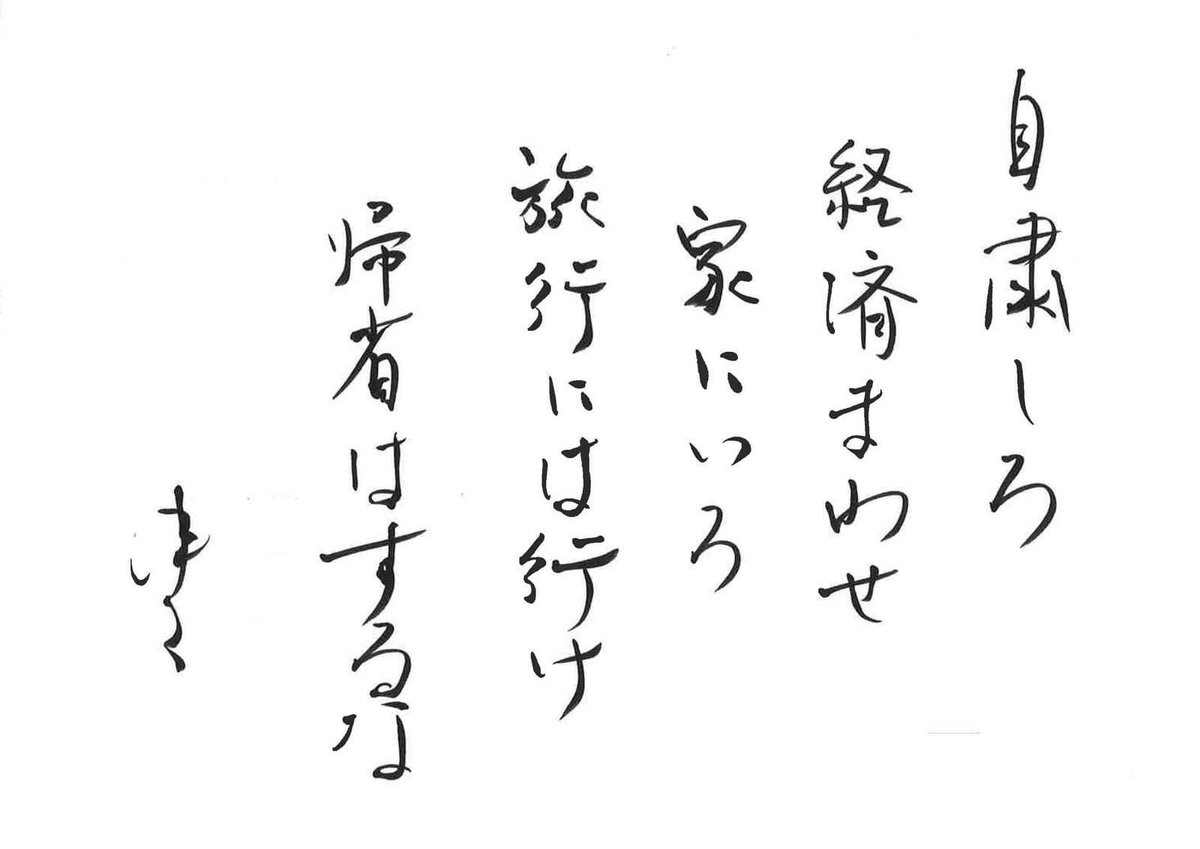 自粛しろ
経済まわせ
家にいろ
旅行には行け
帰省はするな